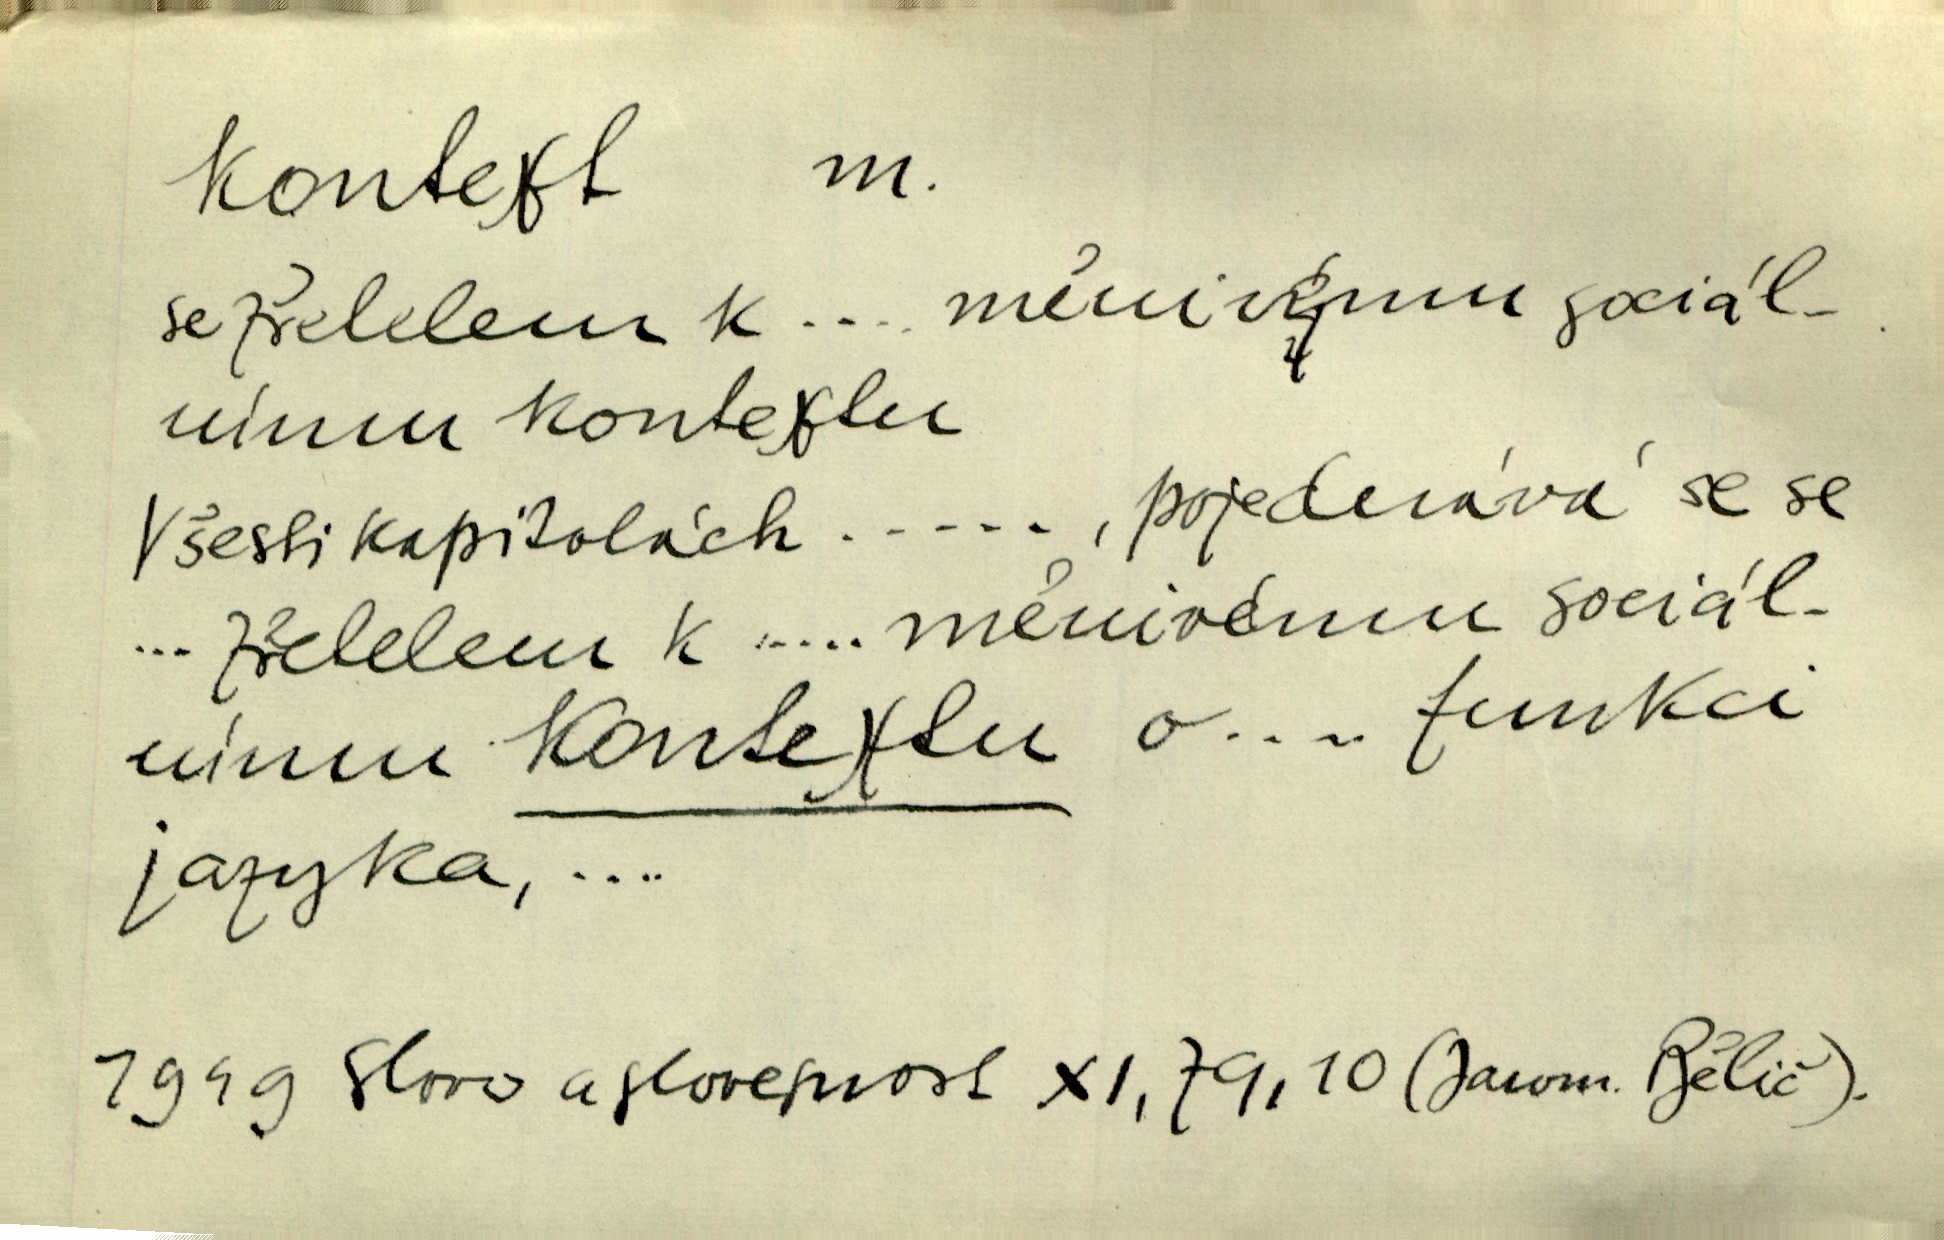 kontext m.
se zřetelem k .... měnivému sociál-
nímu kontextu
V šesti kapitolách ....., pojednává se se
... zřetelem k ..... měnivému sociál-
nímu kontextu o .... funkci
jazyka, ....
1949 Slovo a slovesnost XI, 79, 10 (Jarom. Bělič).